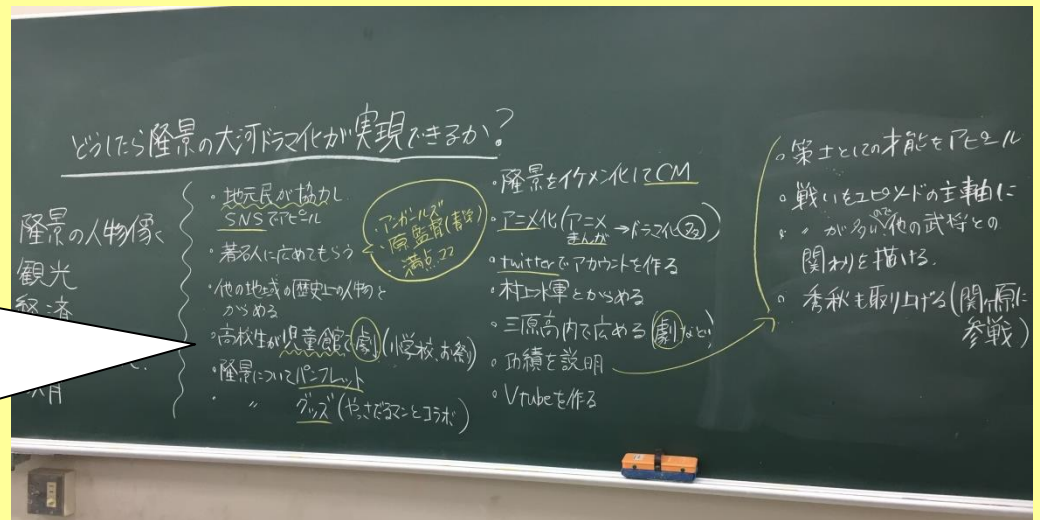 どうしたら隆景の大河ドラマ化が実現できるか?
隆景の人物像
観光
経済
・地元民が協力し
SNSでアピール
・著名人に広めてもらう
・他の地域の歴史上の人物と
からめる
・高校生が児童館で劇(小学校、お祭り)
・隆景についてパンフレット
・ 〃 グッズ(やっさだるマンとコラボ)
・アンガールズ
・原監督(青学)
・満点
・隆景をイケメン化してCM
・アニメ化(アニメ
まんが→ドラマ化)
・twitterでアカウントを作る
・村上水軍とからめる
・三原高内で広める(劇など)
・功績を説明
・Vtubeを作る
・策士としての才能をアピール
・戦いをエピソードの主軸に
・ 〃 が多いので他の武将との
関わりを描ける.
・秀秋も取り上げる(関ヶ原に
参戦)